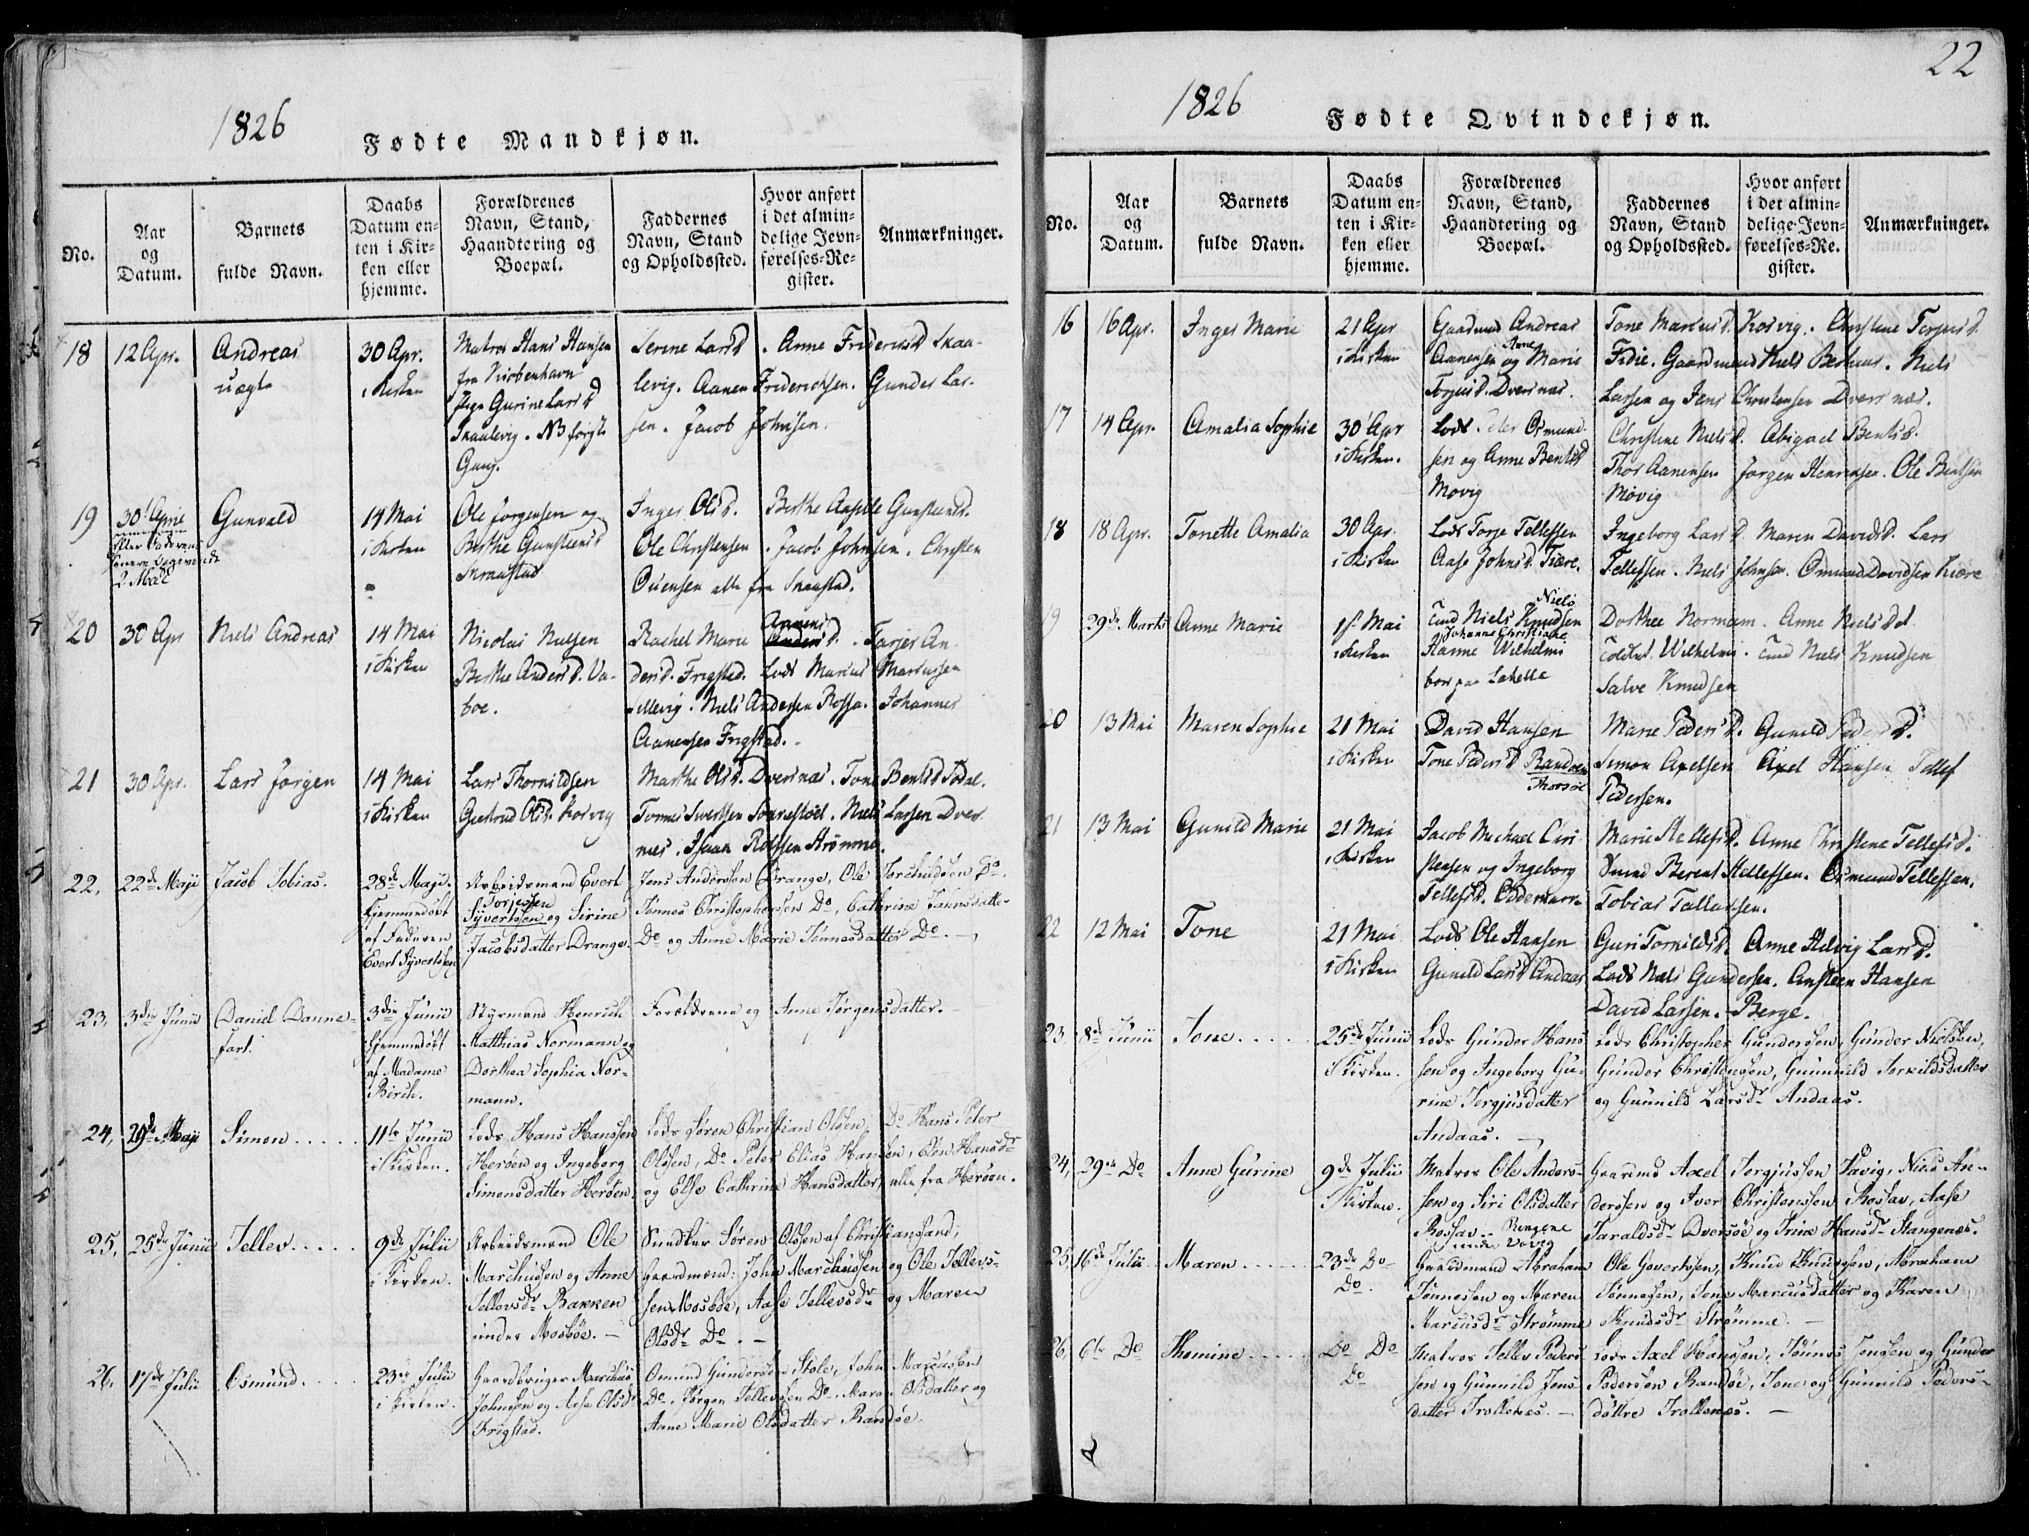 1826
Fødte Mandkjøn.
No.
Aar
og
Datum.
Barnets
fulde Navn.
Daabs
Datum en-
ten i Kir-
ken eller
hjemme.
Forældrenes
Navn, Stand,
Haandtering og
Boepæl.
Faddernes
Navn, Stand
og Opholdssted.
Hvor anført
i det almin-
delige Jevn-
førelses-Re-
gister.
Anmærkninger.
18
12 Apr.
Andreas
uægte
30 Apr.
i Kirken
Matros Hans Hansen
fra Kiøbenhavn
Pige Gurine Larsd
Skaalevig. NB første
Gang.
Serine Larsd. Anne Fridericksd Skaa-
levig. Aanen Friderichsen. Gunder Lar-
sen. Jacob Johnsen.
19
30 Aprie
2 Mai
Gunvald
14 Mai
i Kirken
Ole Jørgensen og
Berthe Gunsteensd
Skraastad
Inger Olsd. Berthe Gunsteensd.
Ole Christensen. Jacob Johnsen. Christen
Ouensen alle fra Skraastad.
20
30 Apr
Niels Andreas
14 Mai
i Kirken
Nicolai Nielsen
Berthe Andersd. Va-
boe.
Rachel Marie Aanens
Andersd. Tarjer An-
dersd. Frigstad. Lods Marcus Marcussen
Niels Andersen Rossø. Johannes
Aanensen Frigstad.
21
30 Apr.
Lars Jørgen
14 Mai
i Kirken
Lars Thornildsen
Giertrud Olsd. Korsvig
Marthe Olsd. Dversnæs. Tone Bentsd Sodal.
Tønnes Sivertsen Niels Larsen Dver
næs. Isaac Strømme.
22.
22de Maji
Jacob Tobias.
28de Maji.
hjemmedøbt
af Faderen
Evert Syvertsen
Arbeidsmand Evert
Torjesen
Syvertsen og Sirine
Jacobsdatter Drange.
Jens Andersen Drange, Ole Torkildsen Do,
Tønnes Christophersen Do, Cathrine Tønnesdatter
Do og Anne Marie Tønnesdatter Do.
23.
3die Junii
Daniel Danne-
fart.
3die Junii
hjemmedøbt
af Madame
Birch.
Styrmand Henrich
Matthias Normann og
Dorthea Sophia Nor-
mann.
Forældrene og Anne Jørgensdatter.
24.
29de Maji
Simon
11te Junii
i Kirken.
Lods Hans Hanssen
Herøen og Ingeborg
Simonsdatter Herøen.
Lods Søren Christian Olsen, Do Hans Peter
Olsen, Do Peter Elias Hansen, Elen Hansdr
og Else Cathrine Hansdatter, alle fra Herøen.
25.
25de Junii
Tellev
9de Julii
i Kirken.
Arbeidsmand Ole
Marchussen og Anne
Tellevsdr Bakken
under Mosbøe.
Snedker Søren Olsen af Christiansand,
Gaardmænd: John Marchussen og Ole Tellevs-
sen Mosbøe, Aase Tellevsdr og Maren
Olsdr Do.
26.
17de Julii
Osmund
23de Julii
i Kirken.
Gaardbruger Marchus
Johnsen og Aase Olsdr
Frigstad.
Osmund Gundersen Stole, John Marcussen
Do, Jørgen Tellevsen Do, Maren Olsdatter og
Anne Marie Olsdatter Randøe.
22
1826
Fødte Qvindekjøn.
No.
Aar
og
Datum.
Barnets
fulde Navn.
Daabs
Datum en-
ten i Kir-
ken eller
hjemme.
Forældrenes
Navn, Stand,
Haandtering og
Boepæl.
Faddernes
Navn, Stand
og Opholdssted.
Hvor anført
i det almin-
delige Jevn-
førelses-Re-
gister.
Anmærkninger.
16
16 Apr.
Inger Marie
21 Apr
i Kirken
Gaardmd Andreas
Aanensen og Anne Marie
Torjusd. Dversnæs.
Tone Marcusd. Korsvig. Christine Terjesd.
Fidie. Gaardmænd Niels Berthus. Niels
Larsen og Jens Christensen Dversnæs.
17
14 Apr.
Amalia Sophie
30 Apr
i Kirken.
Lods Peter Osmund-
sen og Anne Bentsd
Movig
Christine Nielsd. Abigael Bentsd.
Thor Aanensen Jørgen Henriksen. Ole Bentsen
Møvig
18
18 Apr.
Tonette Amalia
30 Apr.
i Kirken
Lods Torje Tellefsen
Aase Johnsd. Kiære.
Ingeborg Larsd. Maren Davidsd. Lars
Tellefsen. Niels Johnsen. Osmund Davidsen Kiære
19
29de Marts
Anne Marie
1ste Mai
i Kirken
Niels Knudsen
Johanne Christiane
Hanne Wilhelmi
boe paa Lahelle
Dorthee Normann. Anne Nielsdt.
Wilhelmi. Niels Knudsen
Salve Knudsen
20
13 Mai
Maren Sophie
21 Mai
i Kirken
David Hansen
Tone Pedersd Randøen
Thorsøe
Marie Pedersd. Gunild Pedersd.
Simon Axelsen Axel Hansen Tellef
Pedersen.
21
13 Mai
Gunild Marie
21 Mai
i Kirken
Jacob Michael Chri
stensen og Ingeborg
Tellefsd. Oddernæs.
Marie Stellefsd. Anne Christene Tellefsd.
Berent Stellefsen. Osmund Tellefsen.
Tobias Tallaksen.
22
12 Mai
Tone
21 Mai
i Kirken
Lods Ole Hansen
Gunild Larsd Andaas
Guri Tornildsd. Anne Helvig Larsd.
Lods Niels Gundersen. Ansteen Hansen
David Larsen. Berge.
23.
8de Junii
Tone
25de Junii
i Kirken.
Lods Gunder Hans
sen og Ingeborg Gu-
rine Torgjusdatter
Andaas.
Lods Christopher Gundersen, Gunder Nielsen,
Gunder Christensen, Gunnild Torkildsdatter
og Gunnild Larsdr Andaas.
24.
29de Do
Anne Gurine
9de Julii
i Kirken.
Matros Ole Anders-
sen og Siri Olsdatter
Rossøe. Ringene
under Vovig
Gaardmd Axel Torgjussen Vaavig, Niels An-
dersen og Iver Christensen Rossøe, Aase
Taraldsdr Dversøe og Trine Hansdr Stangenæs.
25.
16de Julii
Maren
23de Do
Do.
Gaardmand Abraham
Tønnesen og Maren
Marcusdr Strømme
Ole Govertsen, Knud Knudsen, Abraham
Tønnesen, Tone Marcusdatter og Karen
Knudsdr Strømme.
26.
6te Do
Thomine
Do Do
Do
Matros Tellev Peders
sen og Gunnild Jens
datter Trollenes.
Lods Axel Hansen, Tønnes Jensen og Gunder
Pedersen Randøe, Tone og Gunnild Peders-
døttre Trollenæs.